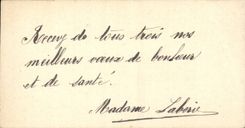 Recevez de tous trois nos
meilleurs vœux de bonheur
et de santé.
Madame Laborie